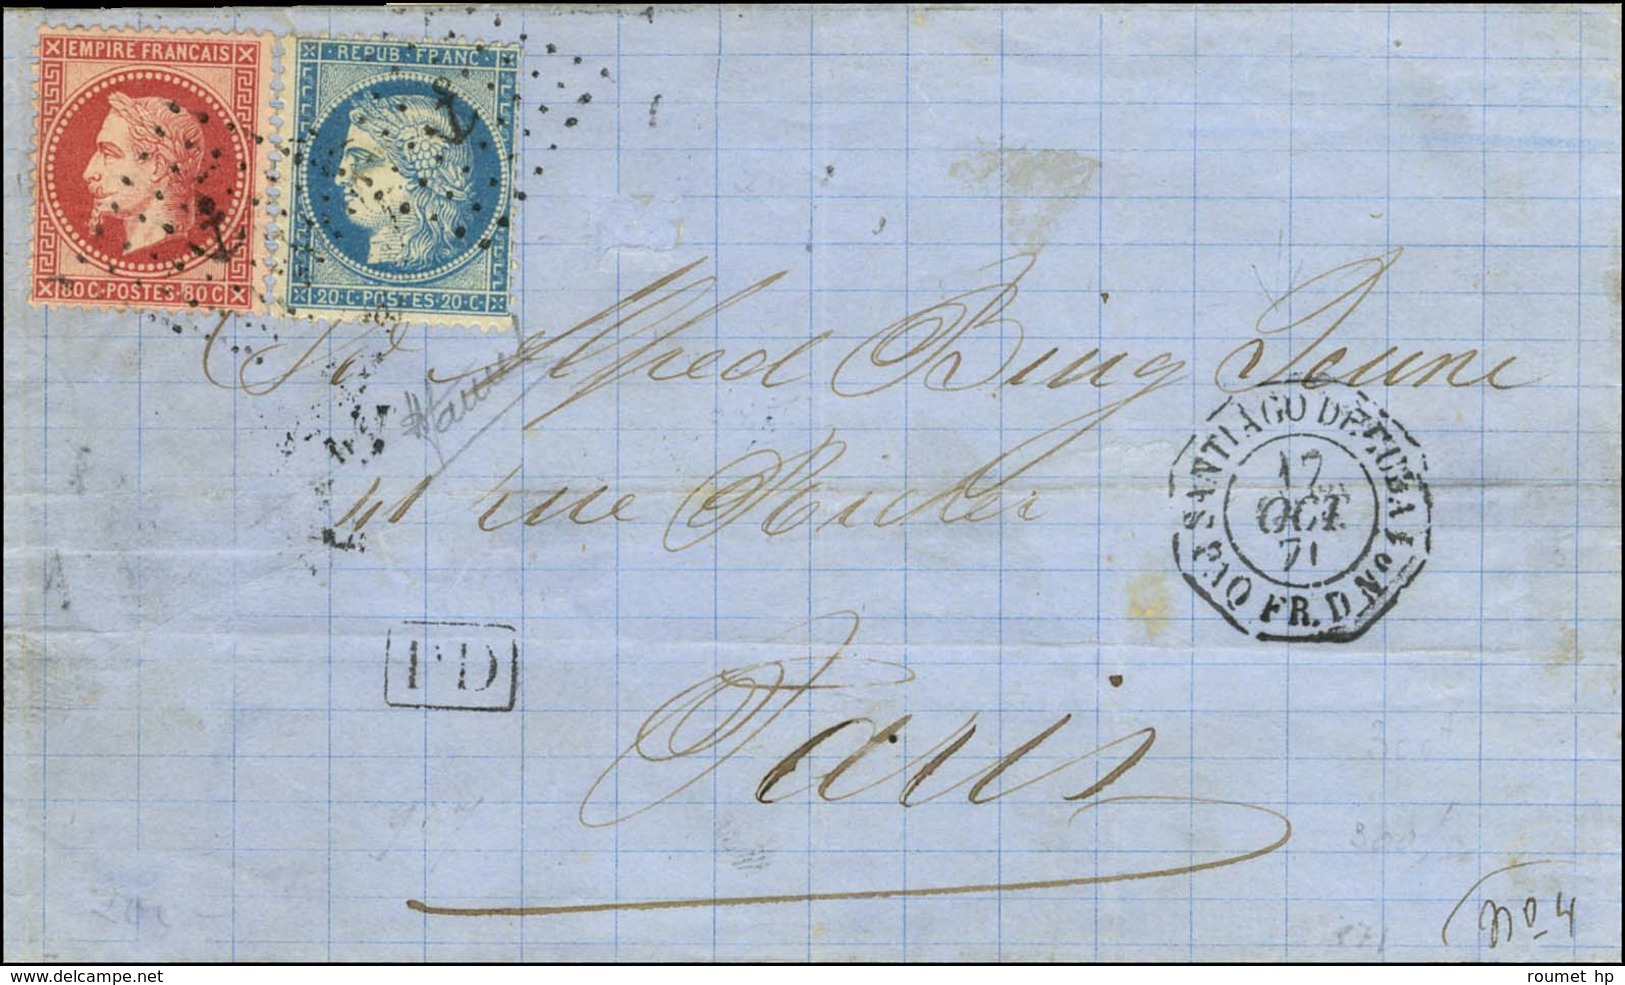 EMPIRE FRANCAIS
80 C·POSTES·80 C
·REPUB·FRANC·
20·C·POSTES·20·C·
Alfred Bing Jeune
41 rue Richer
Paris
PD
SANTIAGO DE CUBA
17
OCT.
71
PAQ FR. D Nº 4
Nº 4
www.delcampe.net
roumet hp